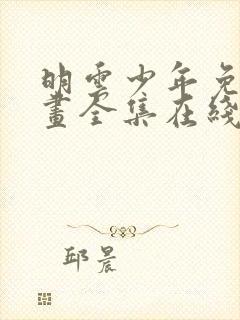 明雲少年免
畫全集在綫
邱晨